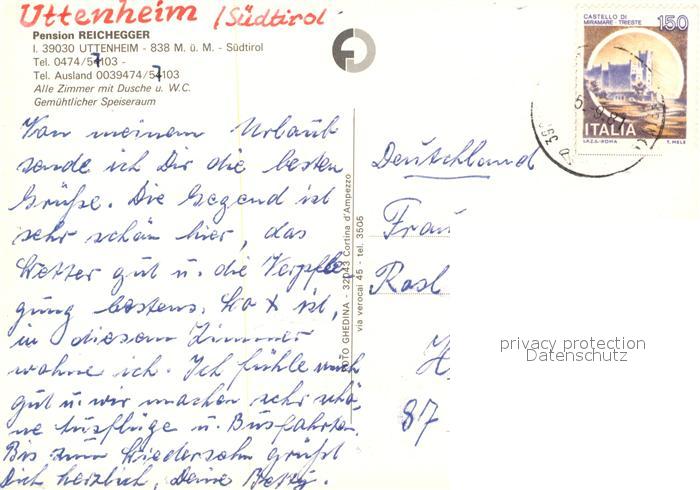 Uttenheim /Südtirol
Pension REICHEGGER
I. 39030 UTTENHEIM - 838 M. ü. M. - Südtirol
Tel. 0474/57103 -
Tel. Ausland 0039474/57103
Alle Zimmer mit Dusche u. W.C.
Gemühtlicher Speiseraum
Von meinem Urlaub
sende ich Dir die besten
Grüße. Die Gegend ist
sehr schön hier, das
Wetter gut u. die Verpfle
gung bestens. Wo x ist,
in diesem Zimmer
wohne ich. Ich fühle mich
gut u. wir machen sehr schö-
ne Ausflüge u. Busfahrten.
Bis zum Wiedersehn grüßt
Dich herzlich, Deine Betty.
FOTO GHEDINA - 32043 Cortina d'Ampezzo
via verocai 45 - tel. 3506
CASTELLO DI
MIRAMARE - TRIESTE
150
ITALIA
I.P.Z.S. - ROMA
T. MELE
Deutschland
Frau
Rosl
H
87
privacy protection
Datenschutz